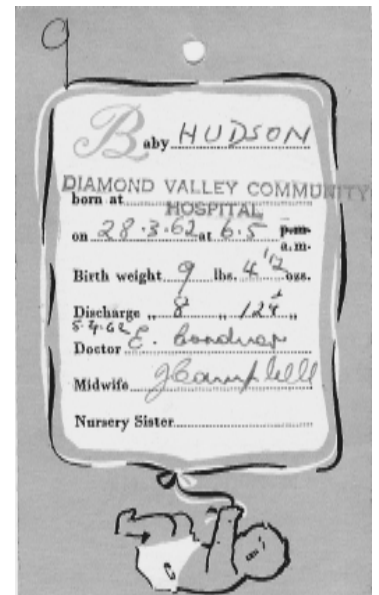 9
Baby HUDSON
DIAMOND VALLEY COMMUNITY
born at
HOSPITAL
on 28·3·62 at 6·5 p.m.
a.m.
Birth weight 9 lbs. 4 1/2 ozs.
Discharge ,, 8 ,, 12 ,,
5·4·62
Doctor E.
Midwife J Campbell
Nursery Sister